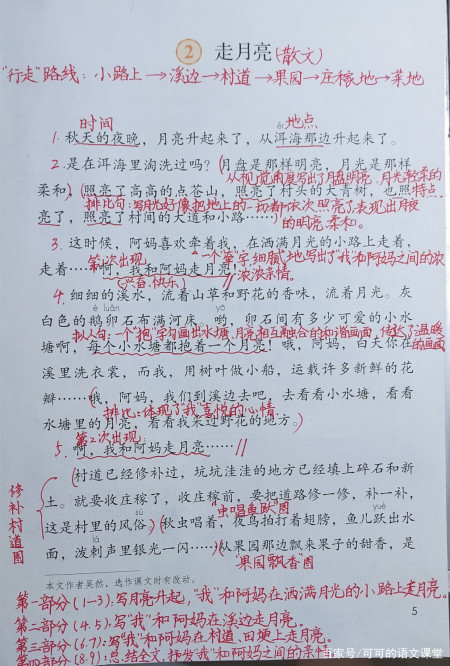 2 走月亮(散文)
"行走"路线：小路上→溪边→村道→果园→庄稼地→菜地
时间 地点
ěr
1. 秋天的夜晚，月亮升起来了，从洱海那边升起来了。
2. 是在洱海里淘洗过吗？(月盘是那样明亮，月光是那样
从视觉角度写出了月盘明亮、月光轻柔的特点
柔和，)(照亮了高高的点苍山，照亮了村头的大青树，也照
排比句：写月光好像把地上的一切都依次照亮了，表现出月夜的明亮、柔和。
亮了，照亮了村间的大道和小路……)
3. 这时候，阿妈喜欢牵着我，在洒满月光的小路上走着，
第一次出现 一个"牵"字，细腻地写出了"我"和阿妈之间的浓浓亲情。
走着……啊，我和阿妈走月亮！
(兴奋、快乐)
4. 细细的溪水，流着山草和野花的香味，流着月光。灰
é luǎn yō
白色的鹅卵石布满河床。哟，卵石间有多少可爱的小水
拟人句：一个"抱"字勾画出水塘、月亮相互融合的和谐画面，传达了温暖的画面
塘啊，每个小水塘都抱着一个月亮！哦，阿妈，白天你在
溪里洗衣裳，而我，用树叶做小船，运载许多新鲜的花
瓣……(哦，阿妈，我们到溪边去吧，去看看小水塘，看看
排比：体现了我喜悦的心情
水塘里的月亮，看看我采过野花的地方。)
第2次出现：
5. 啊，我和阿妈走月亮……
修补村道图
(村道已经修补过，坑坑洼洼的地方已经填上碎石和新
土。就要收庄稼了，收庄稼前，要把道路修一修，补一补，
sú "虫唱鱼跃"图 yuè
这是村里的风俗。)(秋虫唱着，夜鸟拍打着翅膀，鱼儿跃出水
là
面，泼剌声里银光一闪……)(从果园那边飘来果子的甜香，是
"果园飘香"图
本文作者吴然，选作课文时有改动。
5
第一部分(1-3)：写月亮升起，"我"和阿妈在洒满月光的小路上走月亮。
第二部分(4.5)：写"我"和阿妈在溪边走月亮。
第三部分(6.7)：写"我"和阿妈在村道、田埂上走月亮。
第四部分(8.9)：总结全文，抒发"我"和阿妈之间的亲情。
百家号/可可的语文课堂